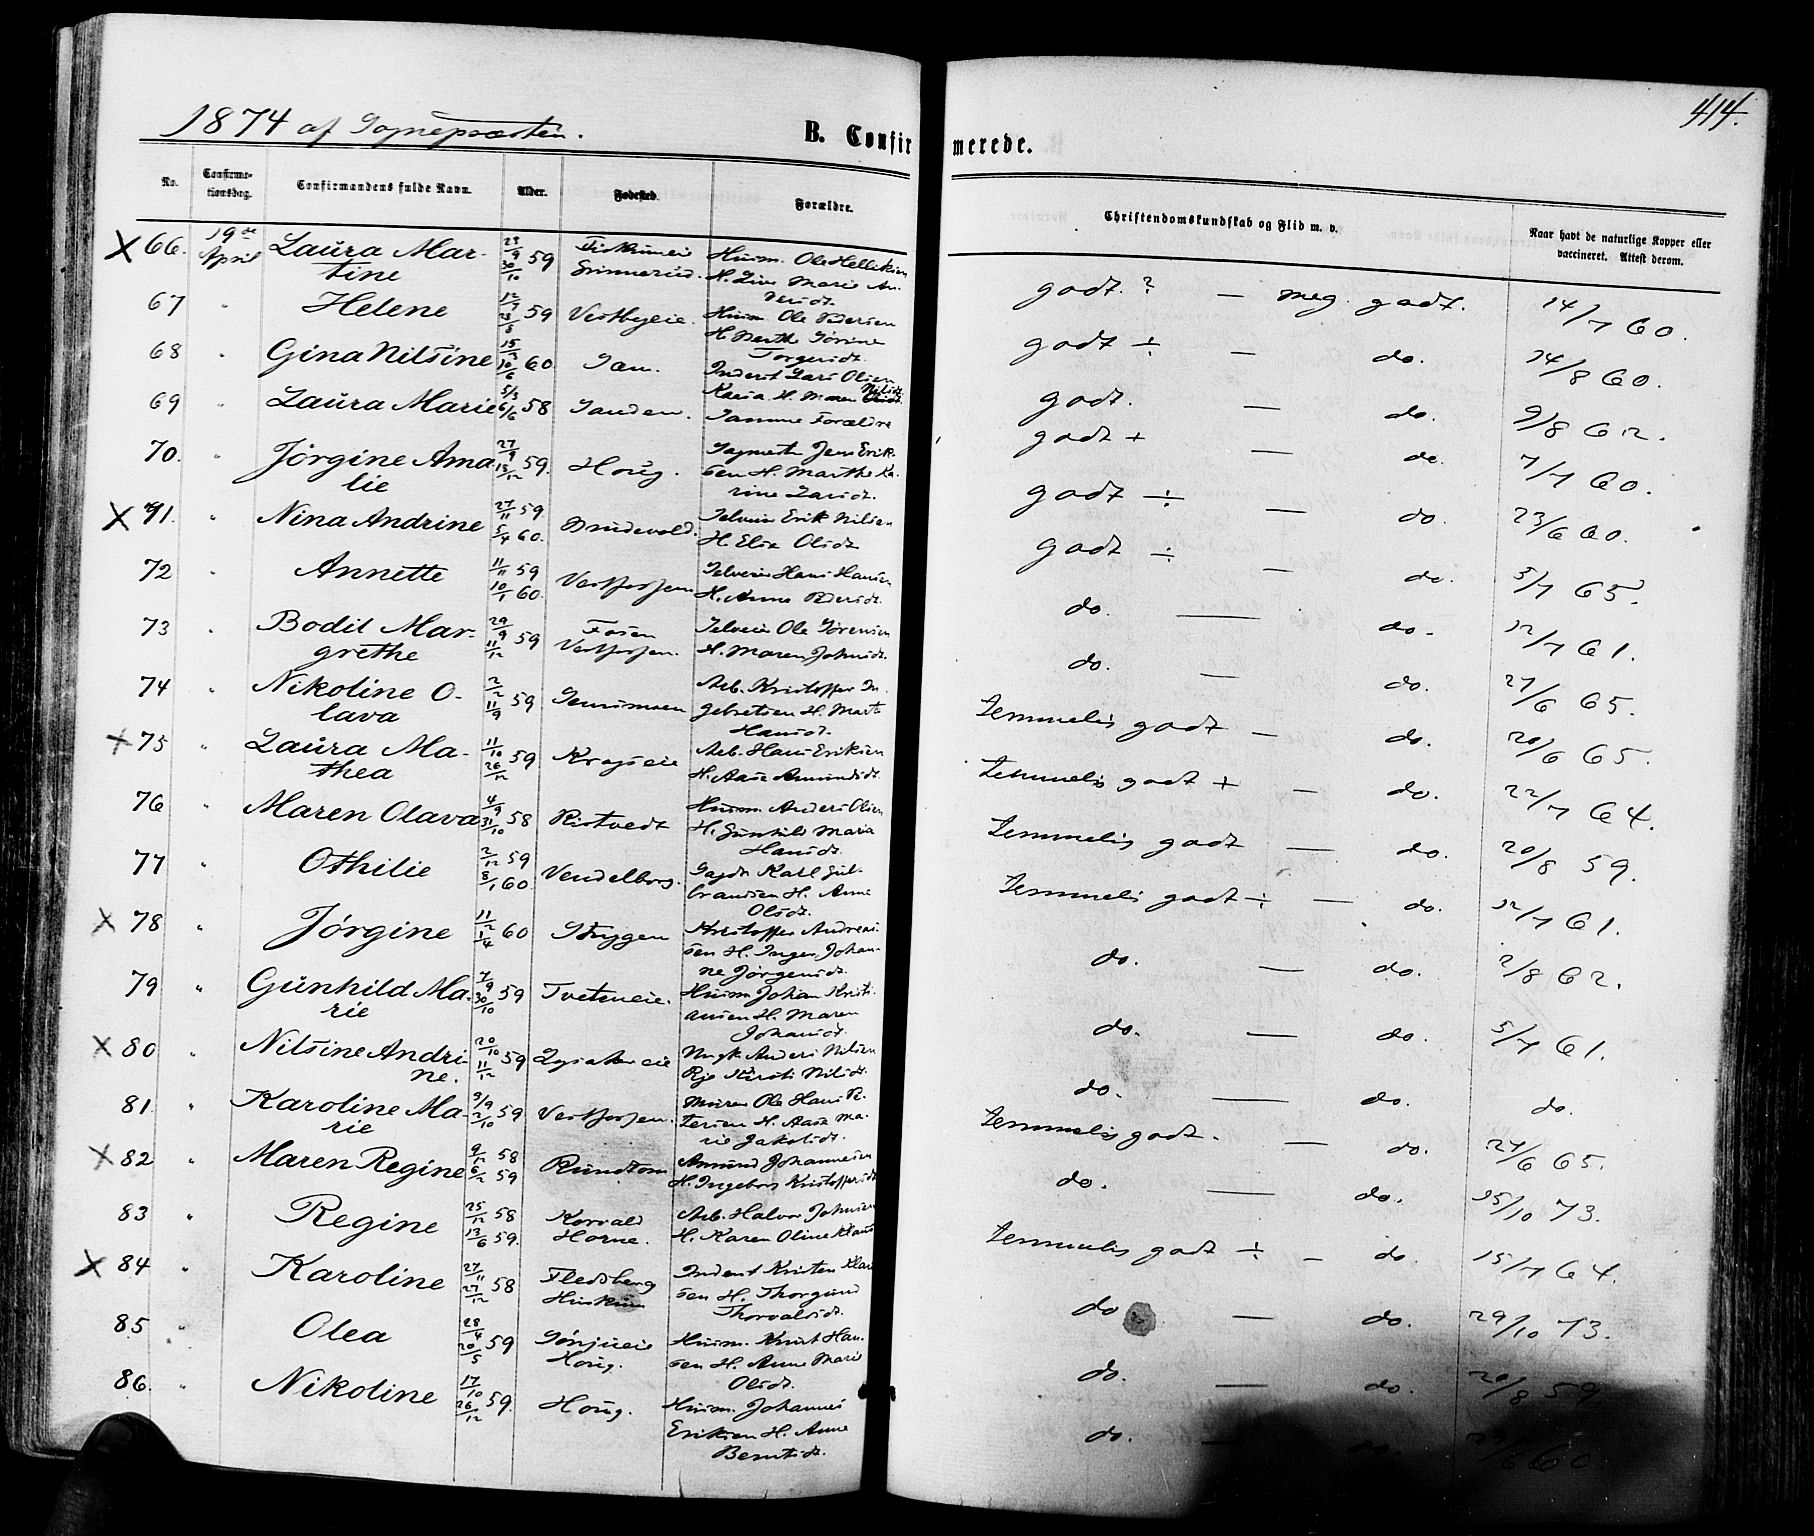 414.
1874 af Sognepræsten.
B. Confirmerede.
No.
Confirmationsdag.
Confirmandens fulde Navn.
Alder.
Fødested.
Forældre.
Christendomskundskab og Flid m. v.
Naar havt de naturlige Kopper eller vaccineret. Attest derom.
X 66. 19de April Laura Martine 23/9 59 30/10 Husm. Ole Helliksen godt ? — meg. godt. 14/7 60.
67 " Helene 12/7 59 28/8 Vestbyeie. Husm. Ole Pedersen godt ÷ — do. 14/8 60.
68 " Gina Nilsine 15/2 60 10/6 Inderst Lars Olsen godt. — do. 9/8 62.
69 " Laura Marie 5/3 58 6/6 Sanden. Samme Forældre godt + — do. 7/7 60.
70. " Jørgine Amalie 27/9 59. 13/12 Houg. Jens Eriksen H. Marthe Karine Larsdt. godt ÷ — do. 23/6 60.
X 71. " Nina Andrine 27/11 59 5/4 60. Brudevold. Selveier Erik Nilsen H. Elise Olsdt. godt ÷ — do. 5/7 65.
72 " Annette 11/11 59 10/1 60. Vestfossen Selveier Hans Hansen H. Anne Pedersdt. do. — do. 12/7 61.
73 " Bodil Margrethe 29/9 59 11/12 Fosen Vestfossen. Selveier Ole Sørensen H. Maren Johnsdt. do. — do. 27/6 65.
74 " Nikoline Olava 2/2 59 11/9 Arb. Kristoffer Ingebretsen H. Marte Hansdt. temmelig godt — do. 20/6 65.
X 75 " Laura Mathea 11/10 59 26/12 Arb. Hans Eriksen H. Aase Amundsdt. temmelig godt + — do. 22/7 64.
76 " Maren Olava 4/9 58 31/10 Ristvedt Husm. Anders Olsen H. Gunhild Maria Hansdt. temmelig godt — do. 20/8 59.
77 " Othilie 2/12 59 8/1 60. Vendelborg. Karl Gulbrandsen H. Anne Olsdt. temmelig godt ÷ — do. 12/7 61.
X 78 " Jørgine 11/2 60 1/4 Styggen Kristoffer Andreassen H. Inger Johanne Jørgensdt. do. — do. 2/8 62.
79 " Gunhild Marie 7/9 59 30/10 Tveteneie. Husm. Johan Kristiansen H. Maren Johansdt. do. — do. 5/7 61.
X 80 " Nilsine Andrine. 20/10 59 11/12 Ungk. Anders Nilsen Pige Kirsti Nilsdt. do. — do. do.
81. " Karoline Marie 3/9 59 2/10 Vestfossen. Murer Ole Hans Petersen H. Aase Marie Jakobsdt. temmelig godt. — do. 27/6 65.
X 82 " Maren Regine 9/12 58 6/2 59 Rundtom Amund Johannesen H. Ingeborg Kristoffersdt. do. — do. 15/10 73.
83 " Regine 25/12 58 13/6 59. Korvald Horne. Arb. Halvor Johnsen H. Karen Oline temmelig godt ÷ — do. 15/7 64.
X 84 " Karoline 27/11 58 27/12 Fledsberg Inderst Kristen H. Thorgund Thorvaldsdt. do — do. 29/10 73.
85 " Olea 28/4 59 20/5 Houg. Husm. Knut Hansen H. Anne Marie Olsdt. do. — do. 20/8 59
86. " Nikoline 17/10 59. 26/12 Houg. Husm. Johannes Eriksen H. Anne Berntsdt. do. — do. 60.